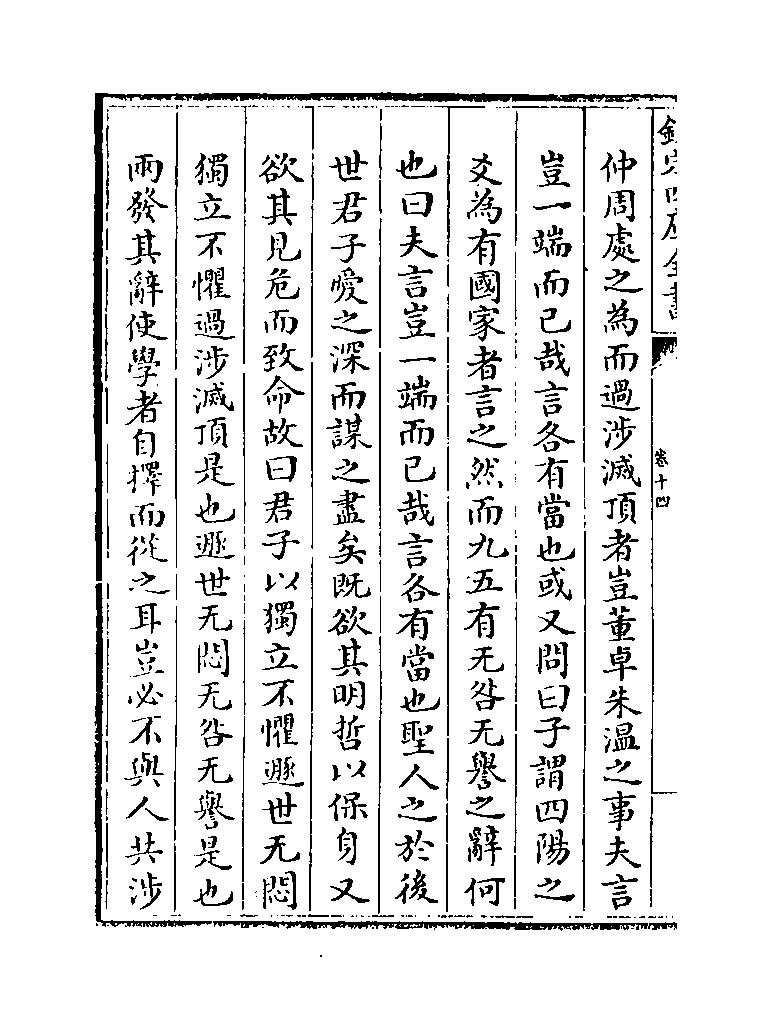 欽定四庫全書
卷十四
仲周處之為而過涉滅頂者豈董卓朱温之事夫言
豈一端而已哉言各有當也或又問曰子謂四陽之
爻為有國家者言之然而九五有无咎无譽之辭何
也曰夫言豈一端而已哉言各有當也聖人之於後
世君子愛之深而謀之盡矣既欲其明哲以保身又
欲其見危而致命故曰君子以獨立不懼遯世无悶
獨立不懼過涉滅頂是也遯世无悶无咎无譽是也
兩發其辭使學者自擇而從之耳豈必不與人共涉